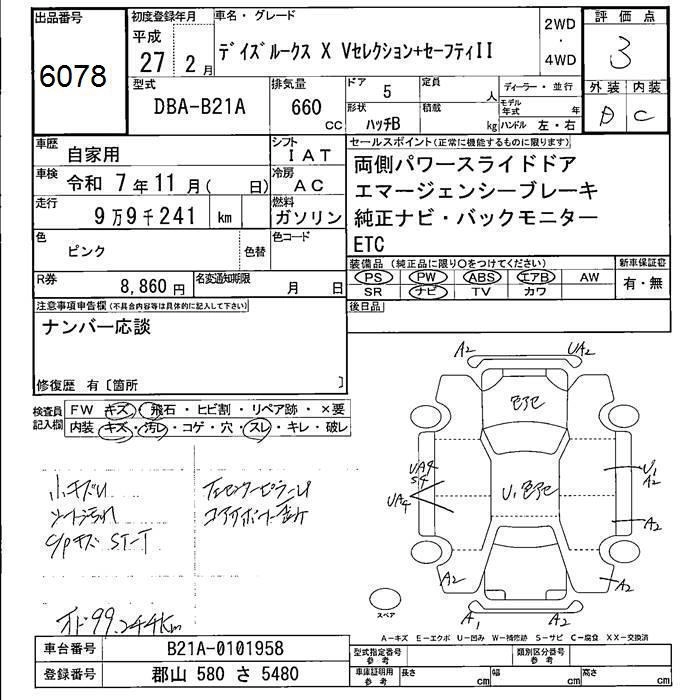 出品番号
6078
初度登録年月
平成
27 2月
車名・グレード
デイズルークス X Vセレクション+セーフティII
2WD
・
4WD
評価点
3
外装 内装
D C
型式
DBA-B21A
排気量
660
CC
ドア
5
定員
人
形状
ハッチB
積載
kg
ディーラー・並行
モデル年式
年
ハンドル 左・右
車歴
自家用
シフト
IAT
車検
令和 7年11月( 日)
冷房
AC
走行
9万9千241 km
燃料
ガソリン
色
ピンク
色替
色コード
R券
8,860円
名変通知期限
月 日
セールスポイント(正常に機能するものに限ります)
両側パワースライドドア
エマージェンシーブレーキ
純正ナビ・バックモニター
ETC
装備品(純正品に限り○をつけてください)
PS PW ABS エアB AW
SR ナビ TV カワ
新車保証書
有・無
後日品
注意事項申告欄(不具合内容等は具体的に記入して下さい)
ナンバー応談
修復歴 有〔箇所 〕
検査員
記入欄
FW キズ・飛石・ヒビ割・リペア跡・×要
内装 キズ・汚レ・コゲ・穴・スレ・キレ・破レ
小キズU
シート汚れ
C/Pキズ ST-T
オド99,244km
A2
UA2
色アセ
U、色アセ
UA4
S4
UA4
U1
A2
A2
A2
A2
A1
A2
スペア
A-キズ E-エクボ U-凹み W-補修跡 S-サビ C-腐食 XX-交換済
車台番号
B21A-0101958
登録番号
郡山 580 さ 5480
型式指定番号
参考
類別区分番号
参考
車庫証明用
参考
長さ
cm
幅
cm
高さ
cm